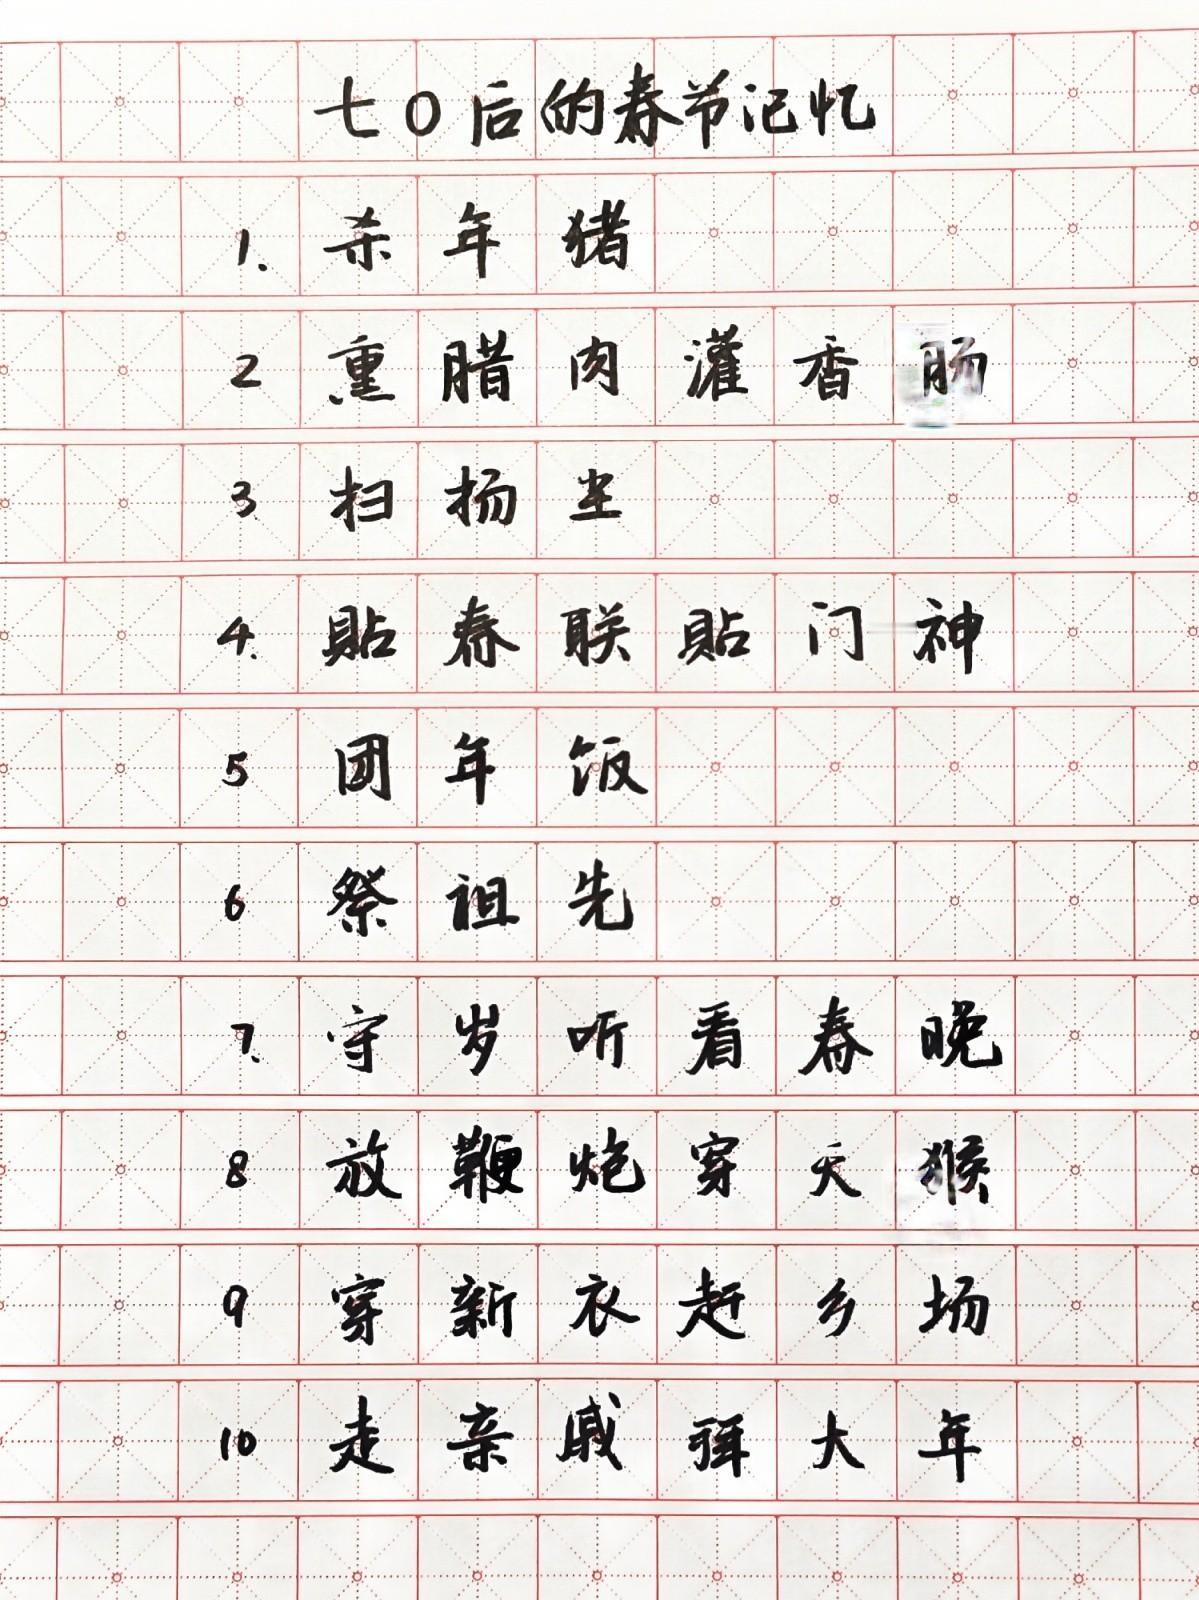 七0后的春节记忆
1. 杀年猪
2 熏腊肉灌香肠
3. 扫扬尘
4. 貼春联貼门神
5 团年饭
6 祭祖先
7. 守岁听看春晚
8 放鞭炮穿天猴
9 穿新衣赶乡场
10 走亲戚拜大年